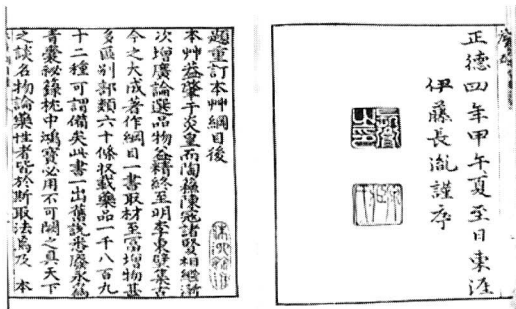 正德四年甲午夏至日東涯
伊藤長胤謹序
題重訂本艸綱目後
本艸盖肇于炎皇而陶蘇陳寇諸賢相繼漸
次增廣論選品物益精終至明李東璧集古
今之大成著作綱目一書取材至富增物甚
多區別部類六十條収載藥品一千八百九
十二種可謂備矣此書一出舊說悉廢永爲
青囊秘錄枕中鴻寶必用不可闕之具天下
之談名物論藥性者皆於斯取法焉及 本